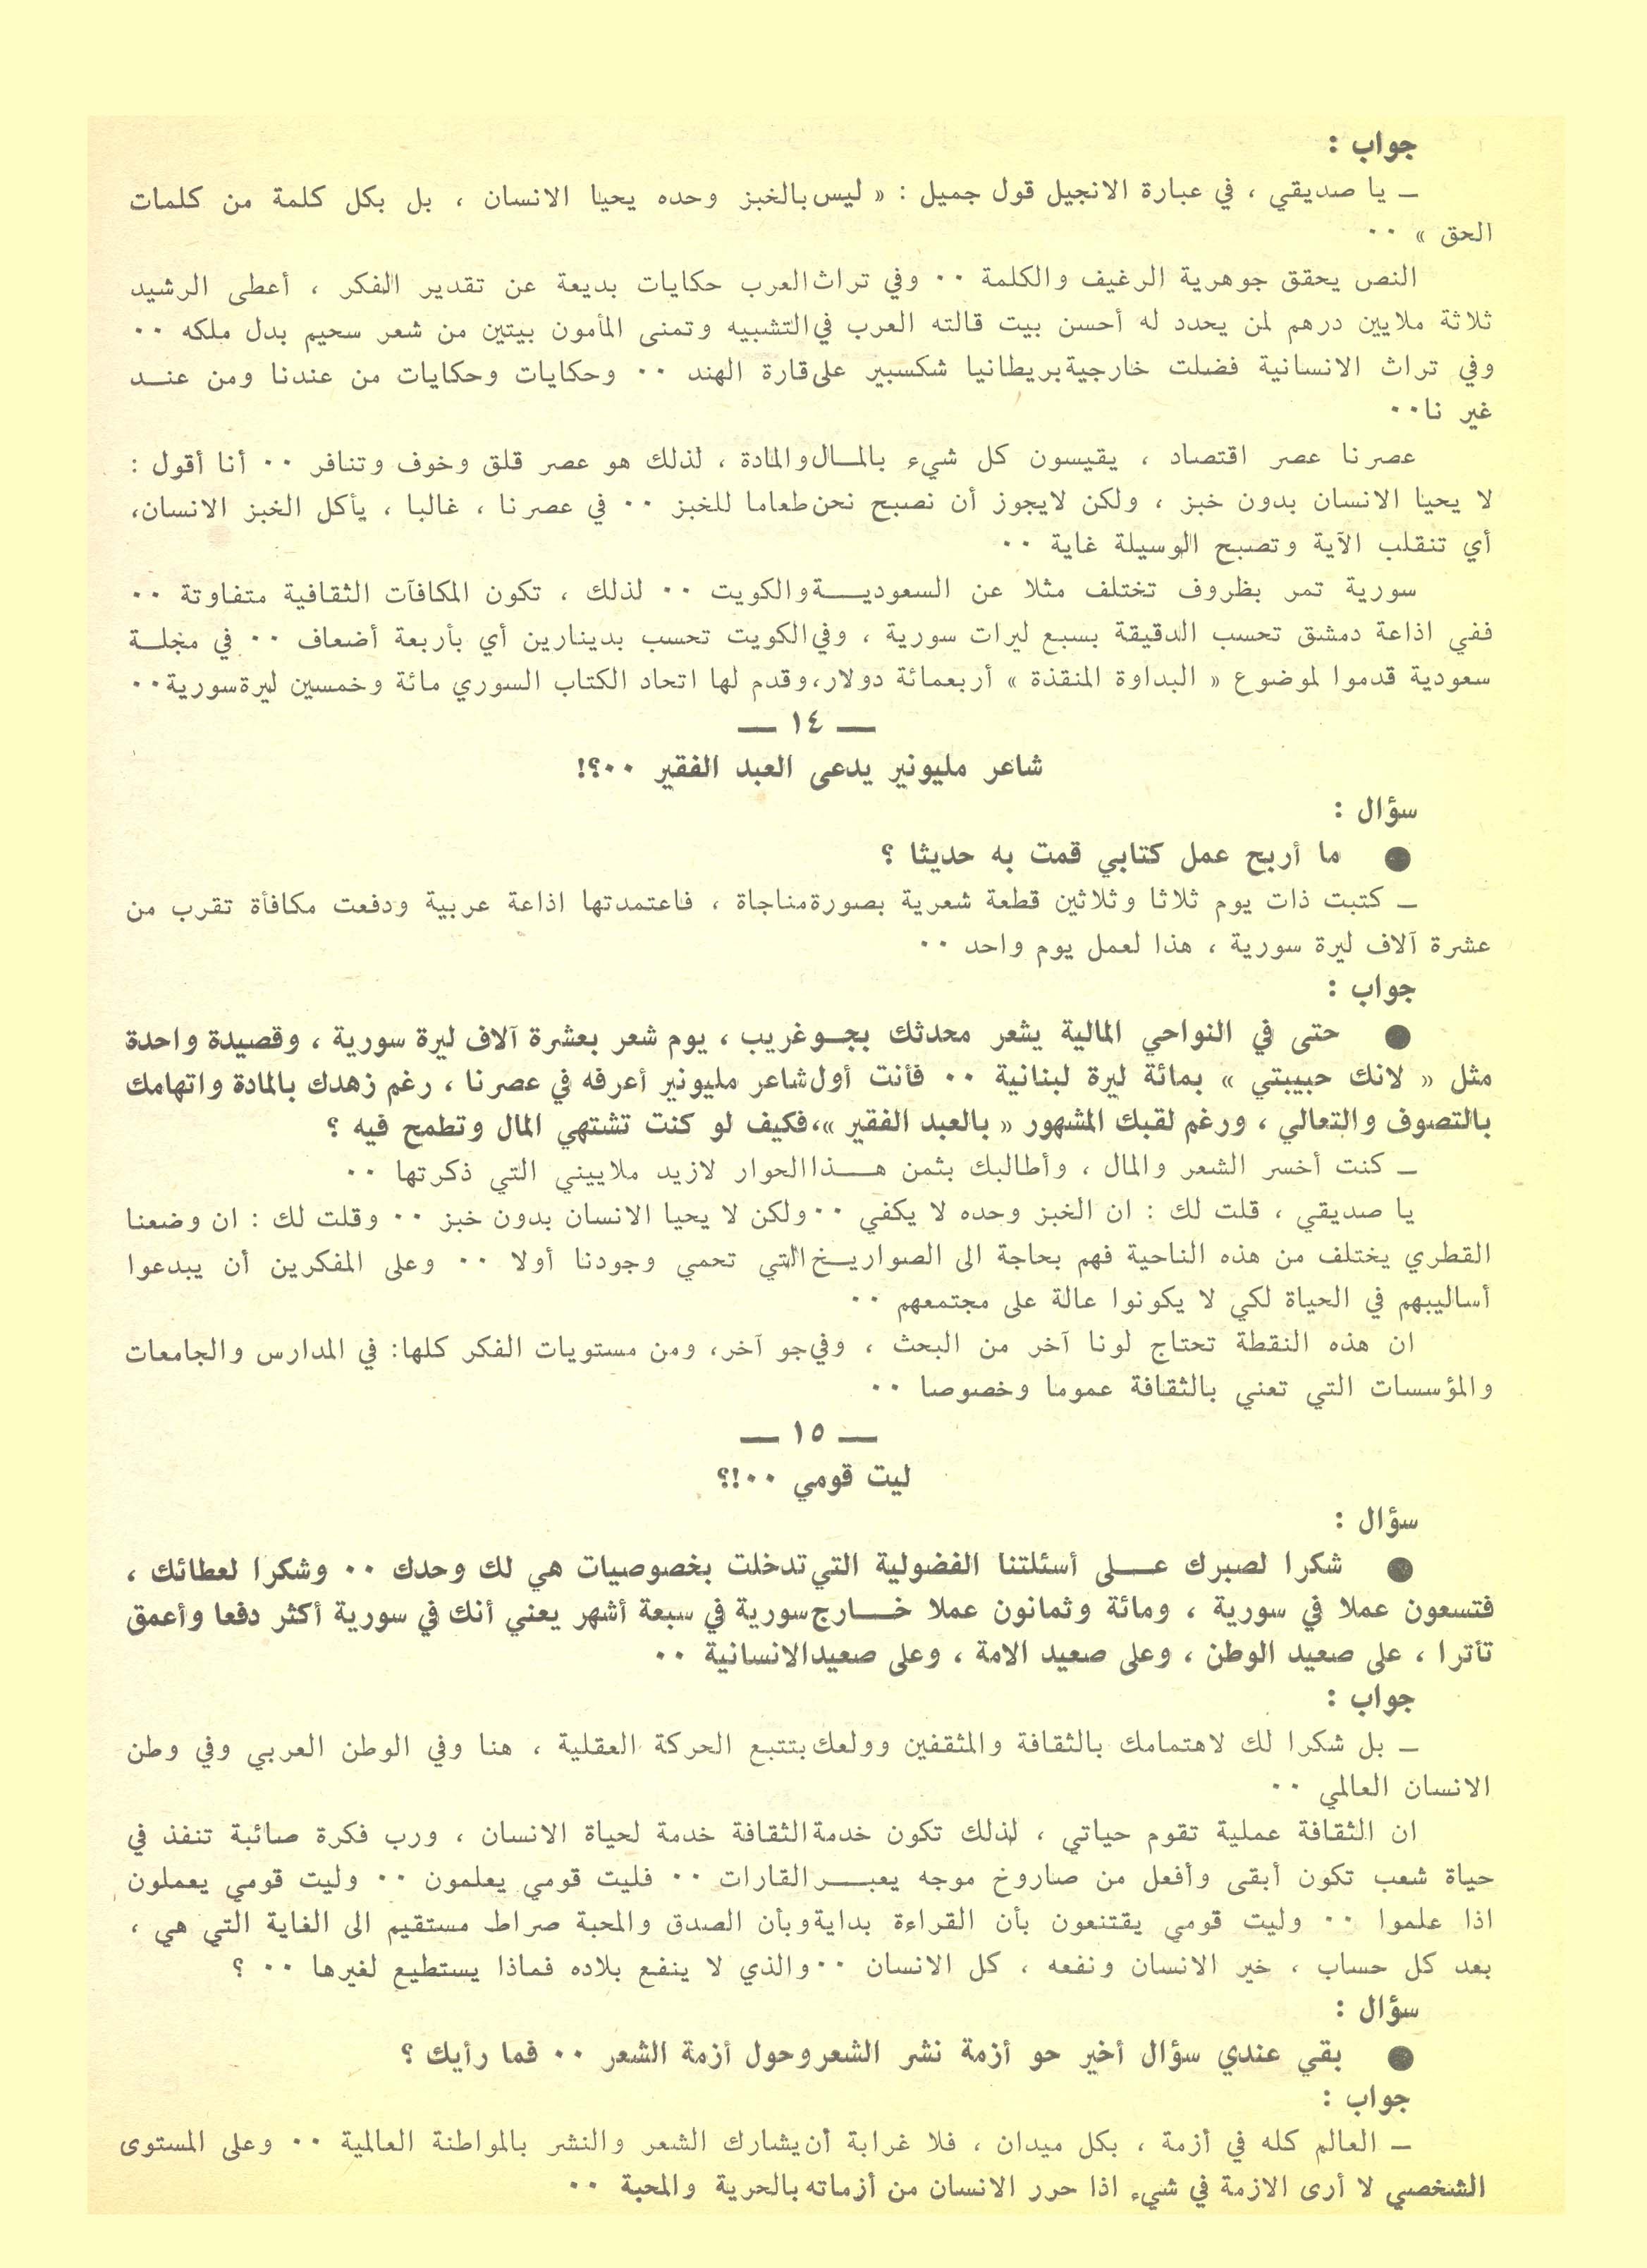 جواب :
ــ يا صديقي ، في عبارة الانجيل قول جميل : « ليس بالخبز وحده يحيا الانسان ، بل بكل كلمة من كلمات
الحق » ٠٠
النص يحقق جوهرية الرغيف والكلمة ٠٠ وفي تراث العرب حكايات بديعة عن تقدير الفكر ، أعطى الرشيد
ثلاثة ملايين درهم لمن يحدد له أحسن بيت قالته العرب في التشبيه وتمنى المأمون بيتين من شعر سحيم بدل ملكه ٠٠
وفي تراث الانسانية فضلت خارجية بريطانيا شكسبير على قارة الهند ٠٠ وحكايات وحكايات من عندنا ومن عنــد
غير نا٠٠
عصرنا عصر اقتصاد ، يقيسون كل شيء بالمــال والمادة ، لذلك هو عصر قلق وخوف وتنافر ٠٠ أنا أقول :
لا يحيا الانسان بدون خبز ، ولكن لايجوز أن نصبح نحن طعاما للخبز ٠٠ في عصرنا ، غالبا ، يأكل الخبز الانسان،
أي تنقلب الآية وتصبح الوسيلة غاية ٠٠
سورية تمر بظروف تختلف مثلا عن السعوديــــة والكويت ٠٠ لذلك ، تكون المكافآت الثقافية متفاوتة ٠٠
ففي اذاعة دمشق تحسب الدقيقة بسبع ليرات سورية ، وفي الكويت تحسب بدينارين أي بأربعة أضعاف ٠٠ في مجلــة
سعودية قدموا لموضوع « البداوة المنقذة » أربعمائة دولار، وقدم لها اتحاد الكتاب السوري مائة وخمسين ليرة سورية٠٠
ــ ١٤ ــ
شاعر مليونير يدعى العبد الفقير ٠٠؟!
سؤال :
● ما أربح عمل كتابي قمت به حديثا ؟
ــ كتبت ذات يوم ثلاثا وثلاثين قطعة شعرية بصورة مناجاة ، فاعتمدتها اذاعة عربية ودفعت مكافأة تقرب من
عشرة آلاف ليرة سورية ، هذا لعمل يوم واحد ٠٠
جواب :
● حتى في النواحي المالية يشعر محدثك بجــو غريب ، يوم شعر بعشرة آلاف ليرة سورية ، وقصيدة واحدة
مثل « لانك حبيبتي » بمائة ليرة لبنانية ٠٠ فأنت أول شاعر مليونير أعرفه في عصرنا ، رغم زهدك بالمادة واتهامك
بالتصوف والتعالي ، ورغم لقبك المشهور « بالعبد الفقير »، فكيف لو كنت تشتهي المال وتطمح فيه ؟
ــ كنت أخسر الشعر والمال ، وأطالبك بثمن هـــذا الحوار لازيد ملاييني التي ذكرتها ٠٠
يا صديقي ، قلت لك : ان الخبز وحده لا يكفي ٠٠ ولكن لا يحيا الانسان بدون خبز ٠٠ وقلت لك : ان وضعنا
القطري يختلف من هذه الناحية فهم بحاجة الى الصواريــخ التي تحمي وجودنا أولا ٠٠ وعلى المفكرين أن يبدعوا
أساليبهم في الحياة لكي لا يكونوا عالة على مجتمعهم ٠٠
ان هذه النقطة تحتاج لونا آخر من البحث ، وفي جو آخر، ومن مستويات الفكر كلها: في المدارس والجامعات
والمؤسسات التي تعني بالثقافة عموما وخصوصا ٠٠
ــ ١٥ ــ
ليت قومي ٠٠!؟
سؤال :
● شكرا لصبرك عـــلى أسئلتنا الفضولية التي تدخلت بخصوصيات هي لك وحدك ٠٠ وشكرا لعطائك ،
فتسعون عملا في سورية ، ومائة وثمانون عملا خـــارج سورية في سبعة أشهر يعني أنك في سورية أكثر دفعا وأعمق
تأثرا ، على صعيد الوطن ، وعلى صعيد الامة ، وعلى صعيد الانسانية ٠٠
جواب :
ــ بل شكرا لك لاهتمامك بالثقافة والمثقفين وولعك بتتبع الحركة العقلية ، هنا وفي الوطن العربي وفي وطن
الانسان العالمي ٠٠
ان الثقافة عملية تقوم حياتي ، لذلك تكون خدمة الثقافة خدمة لحياة الانسان ، ورب فكرة صائبة تنفذ في
حياة شعب تكون أبقى وأفعل من صاروخ موجه يعبـــر القارات ٠٠ فليت قومي يعلمون ٠٠ وليت قومي يعملون
اذا علموا ٠٠ وليت قومي يقتنعون بأن القراءة بداية وبأن الصدق والمحبة صراط مستقيم الى الغاية التي هي ،
بعد كل حساب ، خير الانسان ونفعه ، كل الانسان ٠٠ والذي لا ينفع بلاده فماذا يستطيع لغيرها ٠٠ ؟
سؤال :
● بقي عندي سؤال أخير حو أزمة نشر الشعر وحول أزمة الشعر ٠٠ فما رأيك ؟
جواب :
ــ العالم كله في أزمة ، بكل ميدان ، فلا غرابة أن يشارك الشعر والنشر بالمواطنة العالمية ٠٠ وعلى المستوى
الشخصي لا أرى الازمة في شيء اذا حرر الانسان من أزماته بالحرية والمحبة ٠٠